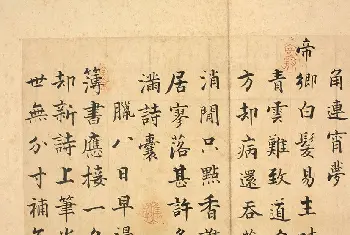 角連宵夢
帝鄉白髮易生
青雲難致道
方却病還吞
消閒只點香
居寥落甚許多
滿詩囊
臘八日早
簿書應接一
却新詩上筆
世無分寸補